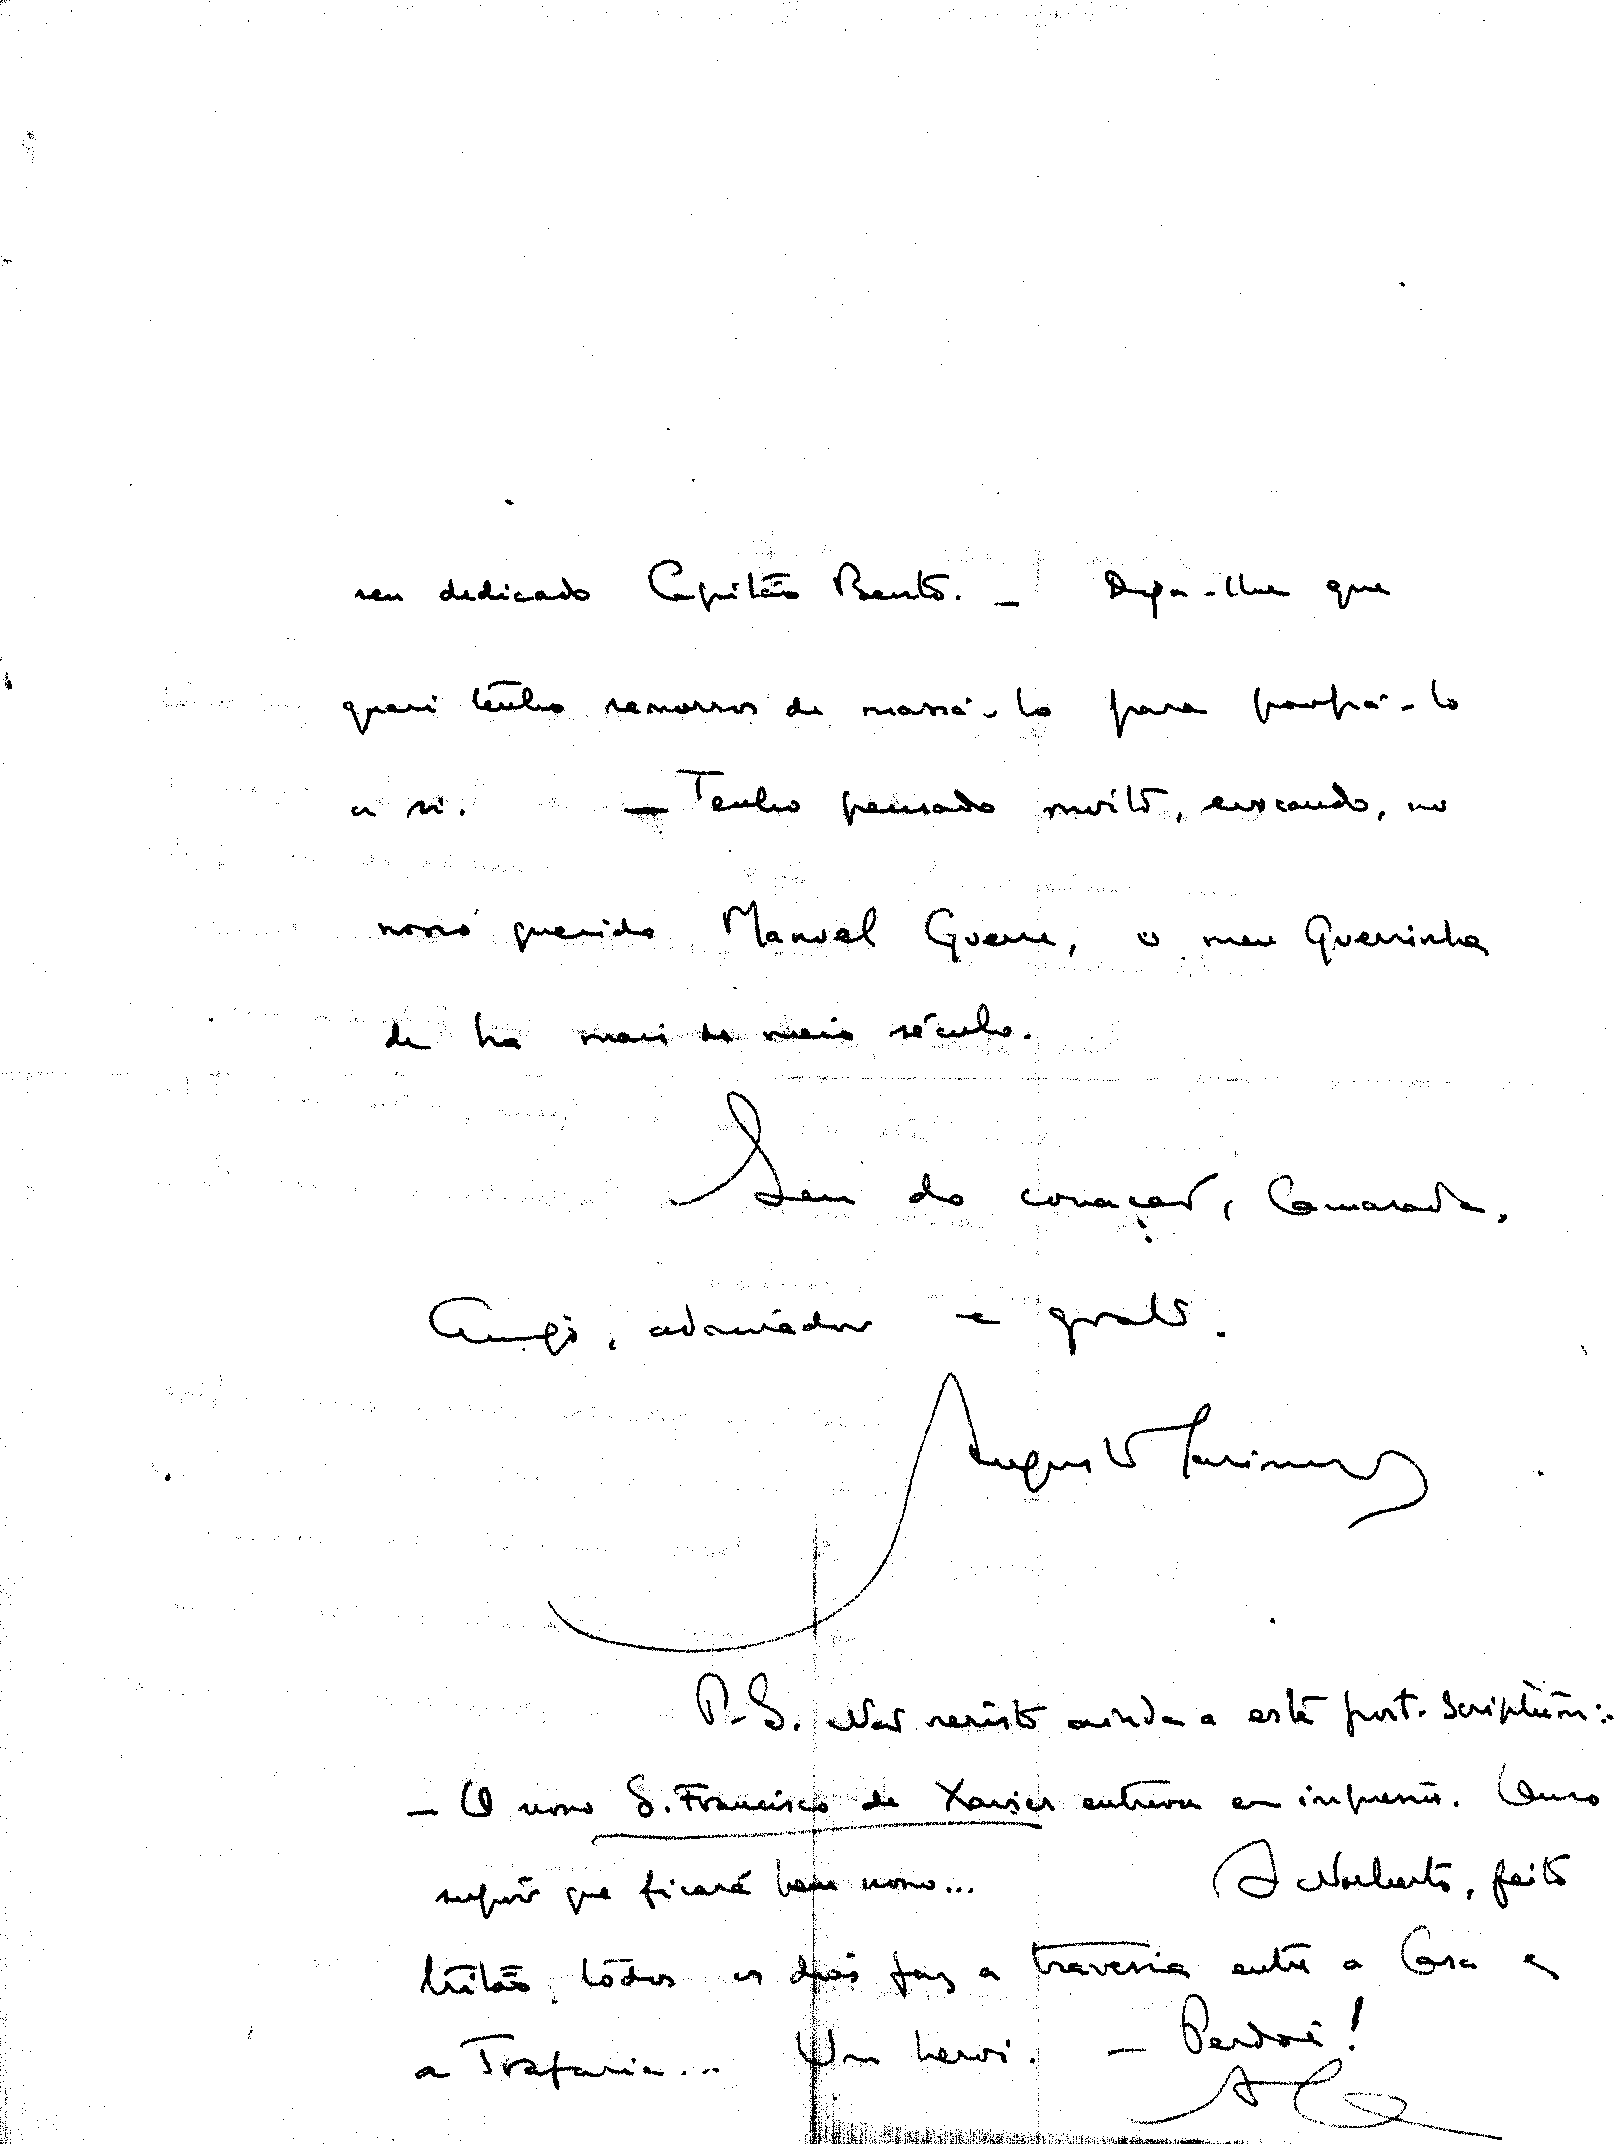 seu dedicado Capitão Bento. — Diga-lhe que
quasi tenho remorsos de massá-lo para poupá-lo
a si. — Tenho pensado muito, evocando, no
nosso querido Manuel Guerra, o meu Guerrinha
de ha mais de meio século.
Seu do coração, Camarada,
Amigo, admirador e grato.
Augusto Casimiro
P.S. Não resisto ainda a este post-scriptum:
— O nono S. Francisco de Xavier entrou em
supôr que ficará bem nono... Norberto, feito
tritão, todos os dias faz a travessia entre a Casa e
a Trafaria... Um heroi. — Perdoe!
AC